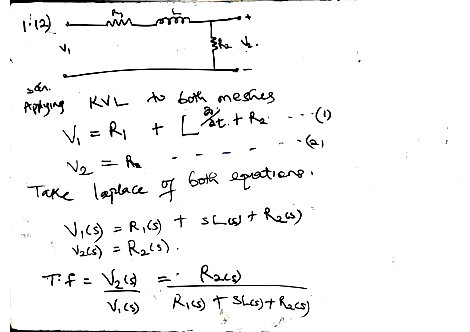 1:(2) R₁ L +
V₁ R₂ V₂.
-
soln.
Applying KVL to both meshes
V₁ = R₁ + L di/dt + R₂ ---(1)
V₂ = R₂ - - - - - -(2)
Take laplace of both equations.
V₁(s) = R₁(s) + sL(s) + R₂(s)
V₂(s) = R₂(s).
T.f = V₂(s)/V₁(s) = R₂(s)/R₁(s) + sL(s) + R₂(s)